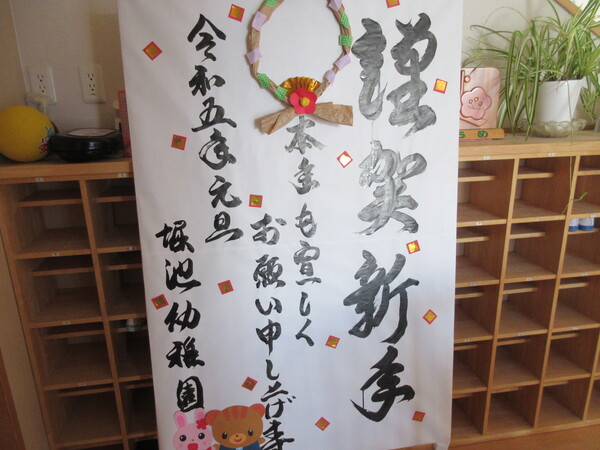 謹賀新年
本年も宜しく
お願い申し上げます
令和五年元旦
堀池幼稚園